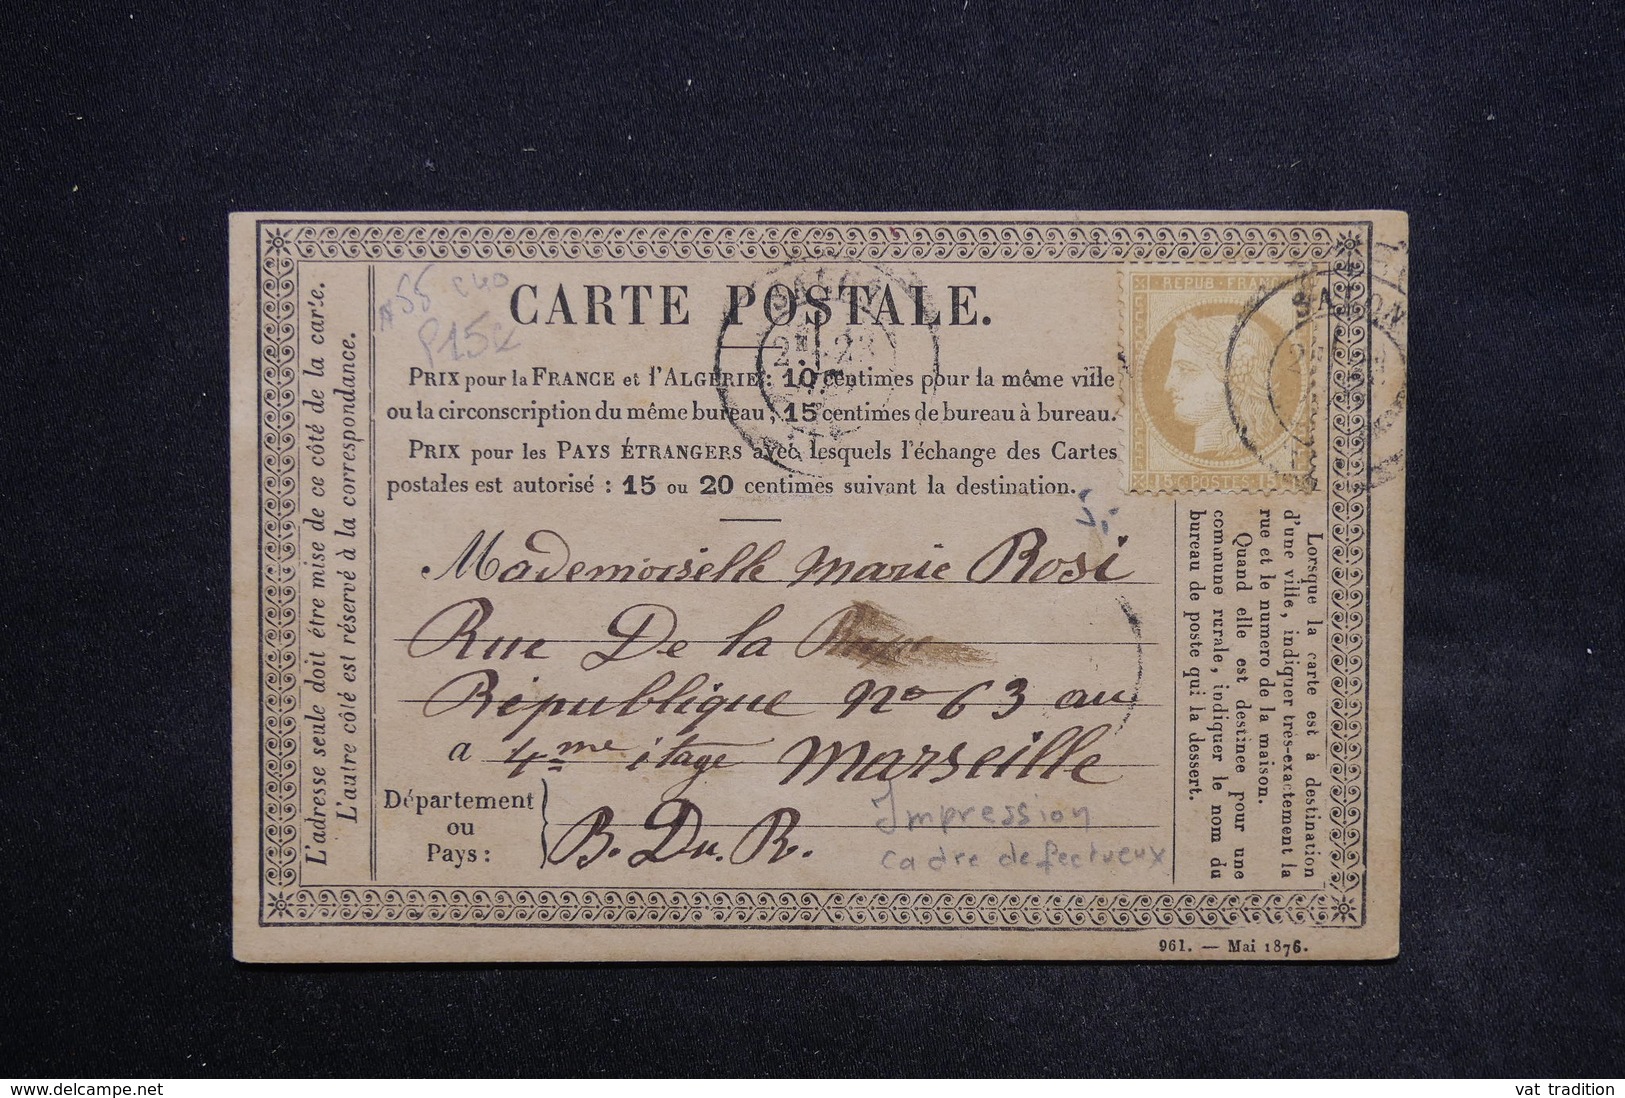 L'adresse seule doit être mise de ce côté de la carte.
L'autre côté est réservé à la correspondance.
CARTE POSTALE.
PRIX pour la FRANCE et l'ALGÉRIE : 10 centimes pour la même ville
ou la circonscription du même bureau ; 15 centimes de bureau à bureau.
PRIX pour les PAYS ÉTRANGERS avec lesquels l'échange des Cartes
postales est autorisé : 15 ou 20 centimes suivant la destination.
REPUB · FRANC
15 C · POSTES · 15
SALON
SALON
23
Mademoiselle Marie Rosi
Rue De la
République no 63 au
a 4me itage Marseille
Département
ou
Pays :
B. Du. R.
Impression
cadre defectueux
Lorsque la carte est à destination
d'une ville, indiquer très-exactement la
rue et le numéro de la maison.
Quand elle est destinée pour une
commune rurale, indiquer le nom du
bureau de poste qui la dessert.
961. — Mai 1876.
delcampe.net
vat tradition